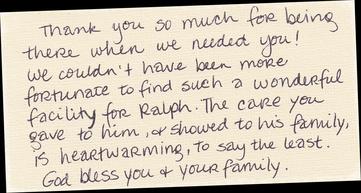 Thank you so much for being
there when we needed you!
We couldn't have been more
fortunate to find such a wonderful
facility for Ralph. The care you
gave to him, & showed to his family,
is heartwarming, to say the least.
God bless you & your family.